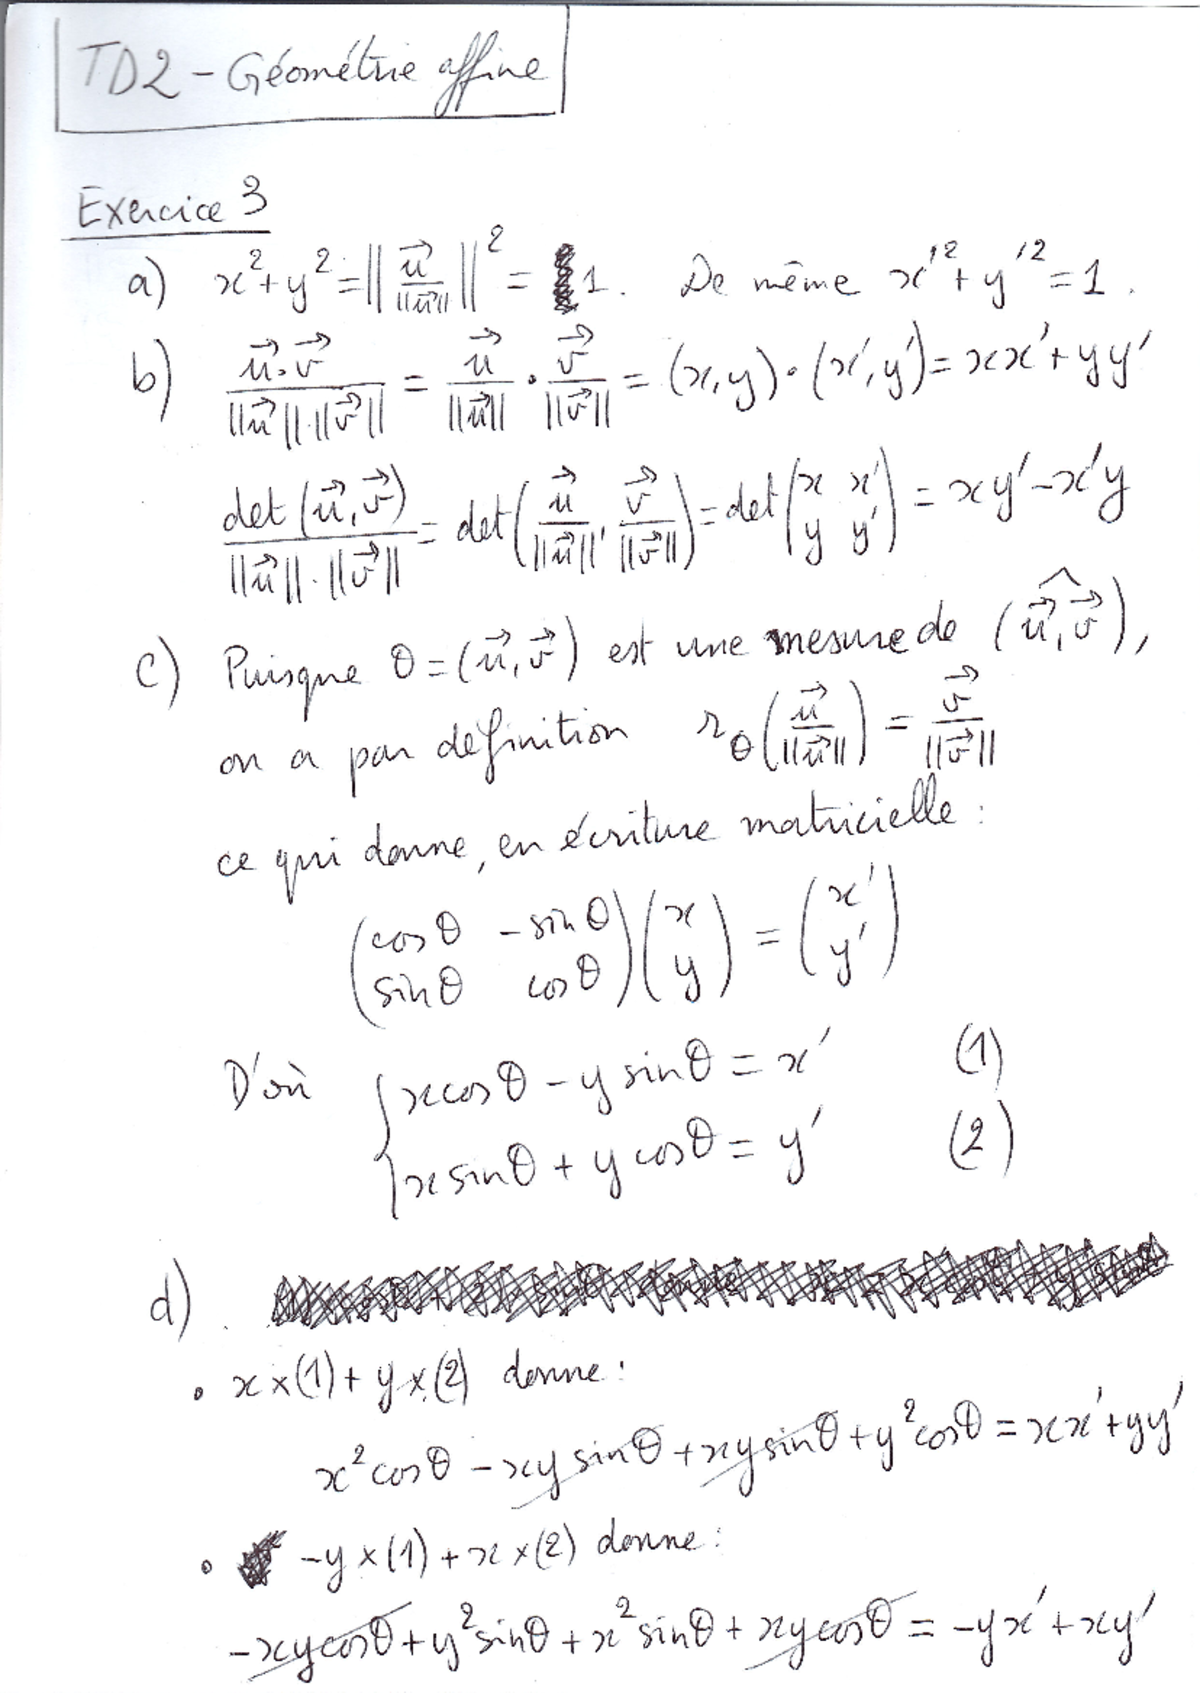 TD2 - Géométrie affine
Exercice 3
a) x² + y² = ||u⃗/||u⃗|| ||² = 1. De même x'² + y'² = 1.
b) u⃗·v⃗/(||u⃗||.||v⃗||) = u⃗/||u⃗|| · v⃗/||v⃗|| = (x,y)·(x',y') = xx' + yy'
det(u⃗,v⃗)/(||u⃗||.||v⃗||) = det(u⃗/||u⃗||, v⃗/||v⃗||) = det(x x' ; y y') = xy' - x'y
c) Puisque θ = (u⃗,v⃗) est une mesure de (u⃗,v⃗)^,
on a par définition r_θ(u⃗/||u⃗||) = v⃗/||v⃗||
ce qui donne, en écriture matricielle :
(cosθ -sinθ ; sinθ cosθ)(x ; y) = (x' ; y')
D'où { xcosθ - y sinθ = x' (1)
xsinθ + y cosθ = y' (2)
d)
• x×(1) + y×(2) donne :
x²cosθ - xy sinθ + xy sinθ + y²cosθ = xx' + yy'
• -y×(1) + x×(2) donne :
-xycosθ + y²sinθ + x²sinθ + xycosθ = -yx' + xy'